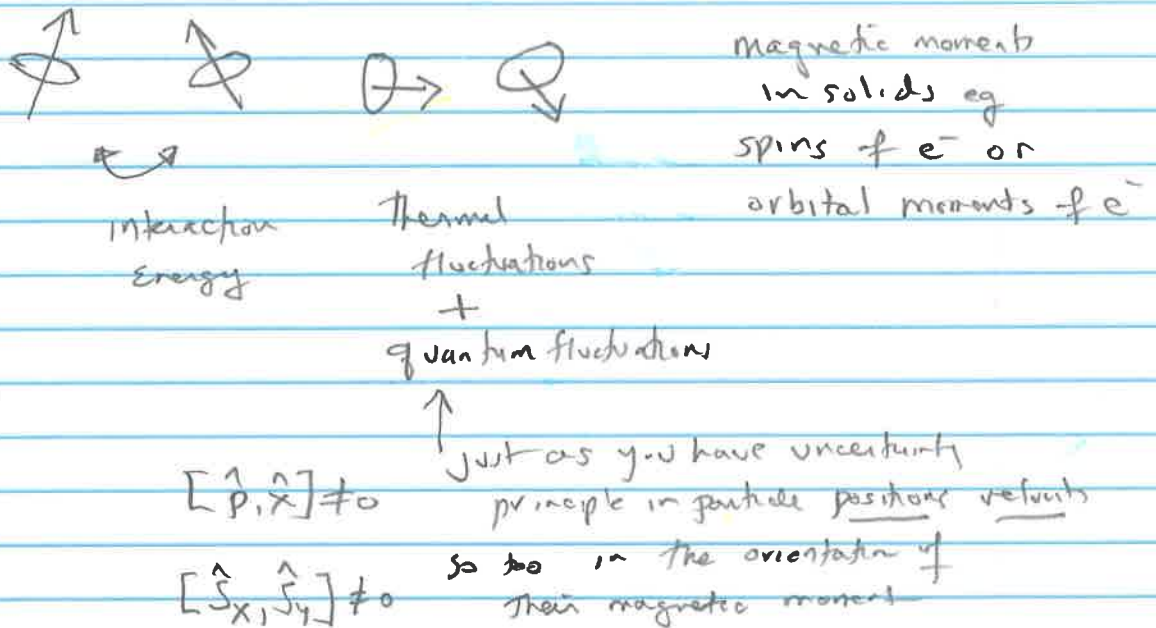 magnetic moments
in solids eg
spins of e⁻ or
orbital moments of e⁻
interaction
Energy
Thermal
fluctuations
+
quantum fluctuations
just as you have uncertainty
[p̂, x̂] ≠ 0 principle in particle positions velocity
so too in the orientation of
[Ŝx, Ŝy] ≠ 0 their magnetic moment